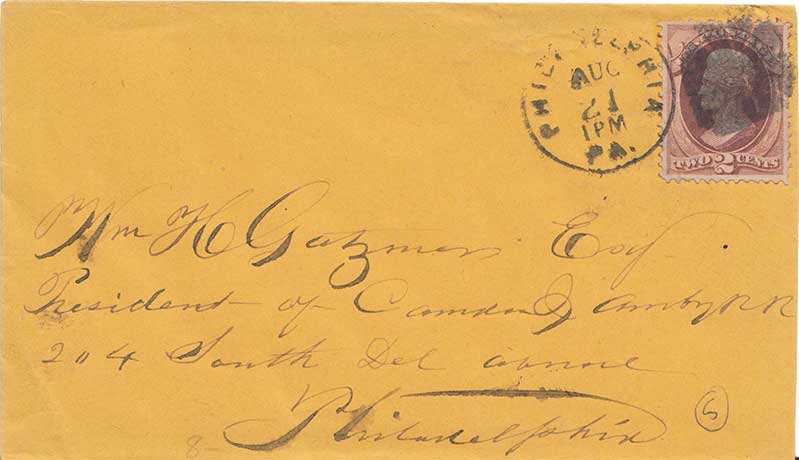 PHILADELPHIA
AUG
21
1PM
PA.
U.S. POSTAGE
TWO 2 CENTS
Wm H Gatzmer Esq
President of Camden & Amboy RR
204 South Del avenue
Philadelphia
8-